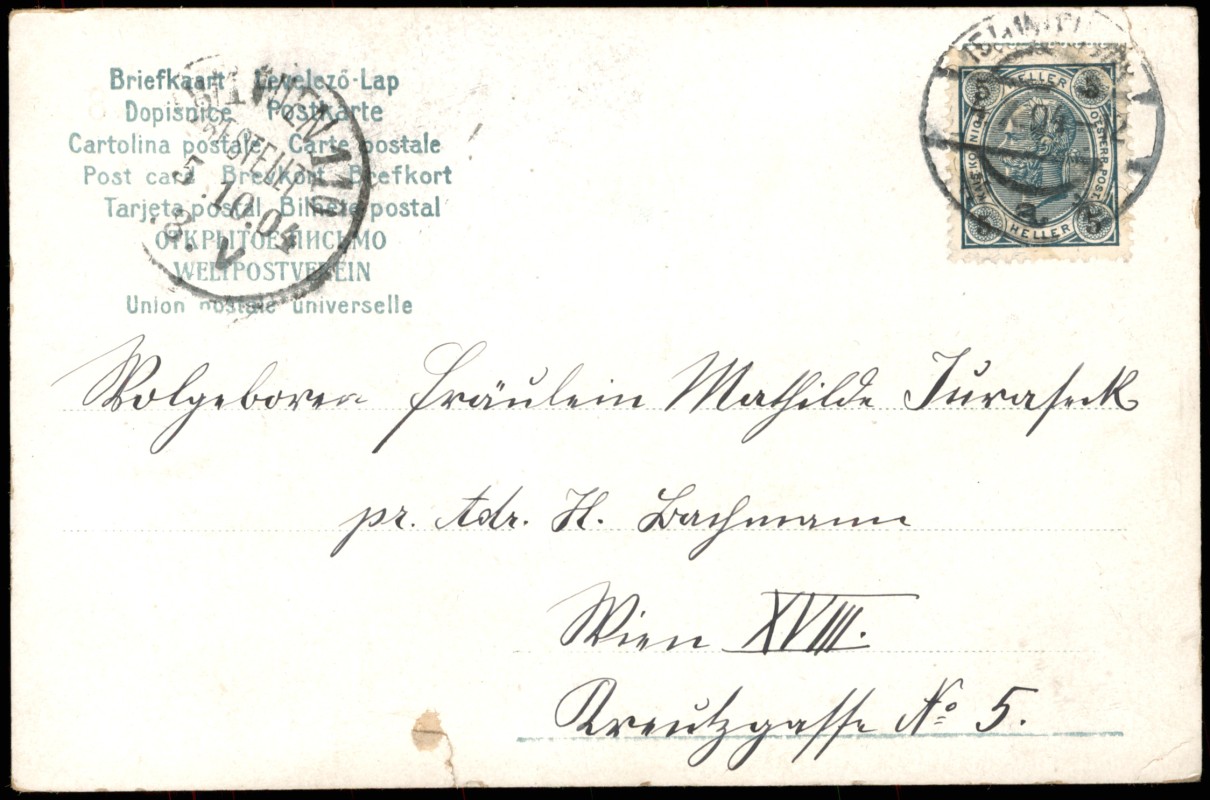 Briefkaart Levelező-Lap
Dopisnice Postkarte
Cartolina postale Carte postale
Post card Brevkort Brefkort
Tarjeta postal Bilhete postal
ОТКРЫТОЕ ПИСЬМО
WELTPOSTVEREIN
Union postale universelle
WIEN 110
BESTELLT
5.10.04
8.V
5 HELLER 5
KAIS. KÖNIGL. OESTERR. POST.
04
a.
5 HELLER 5
Wolgeboren Fräulein Mathilde Juraseck
pr. Adr. H. Bachmann
Wien XVIII.
Kreutzgasse No 5.